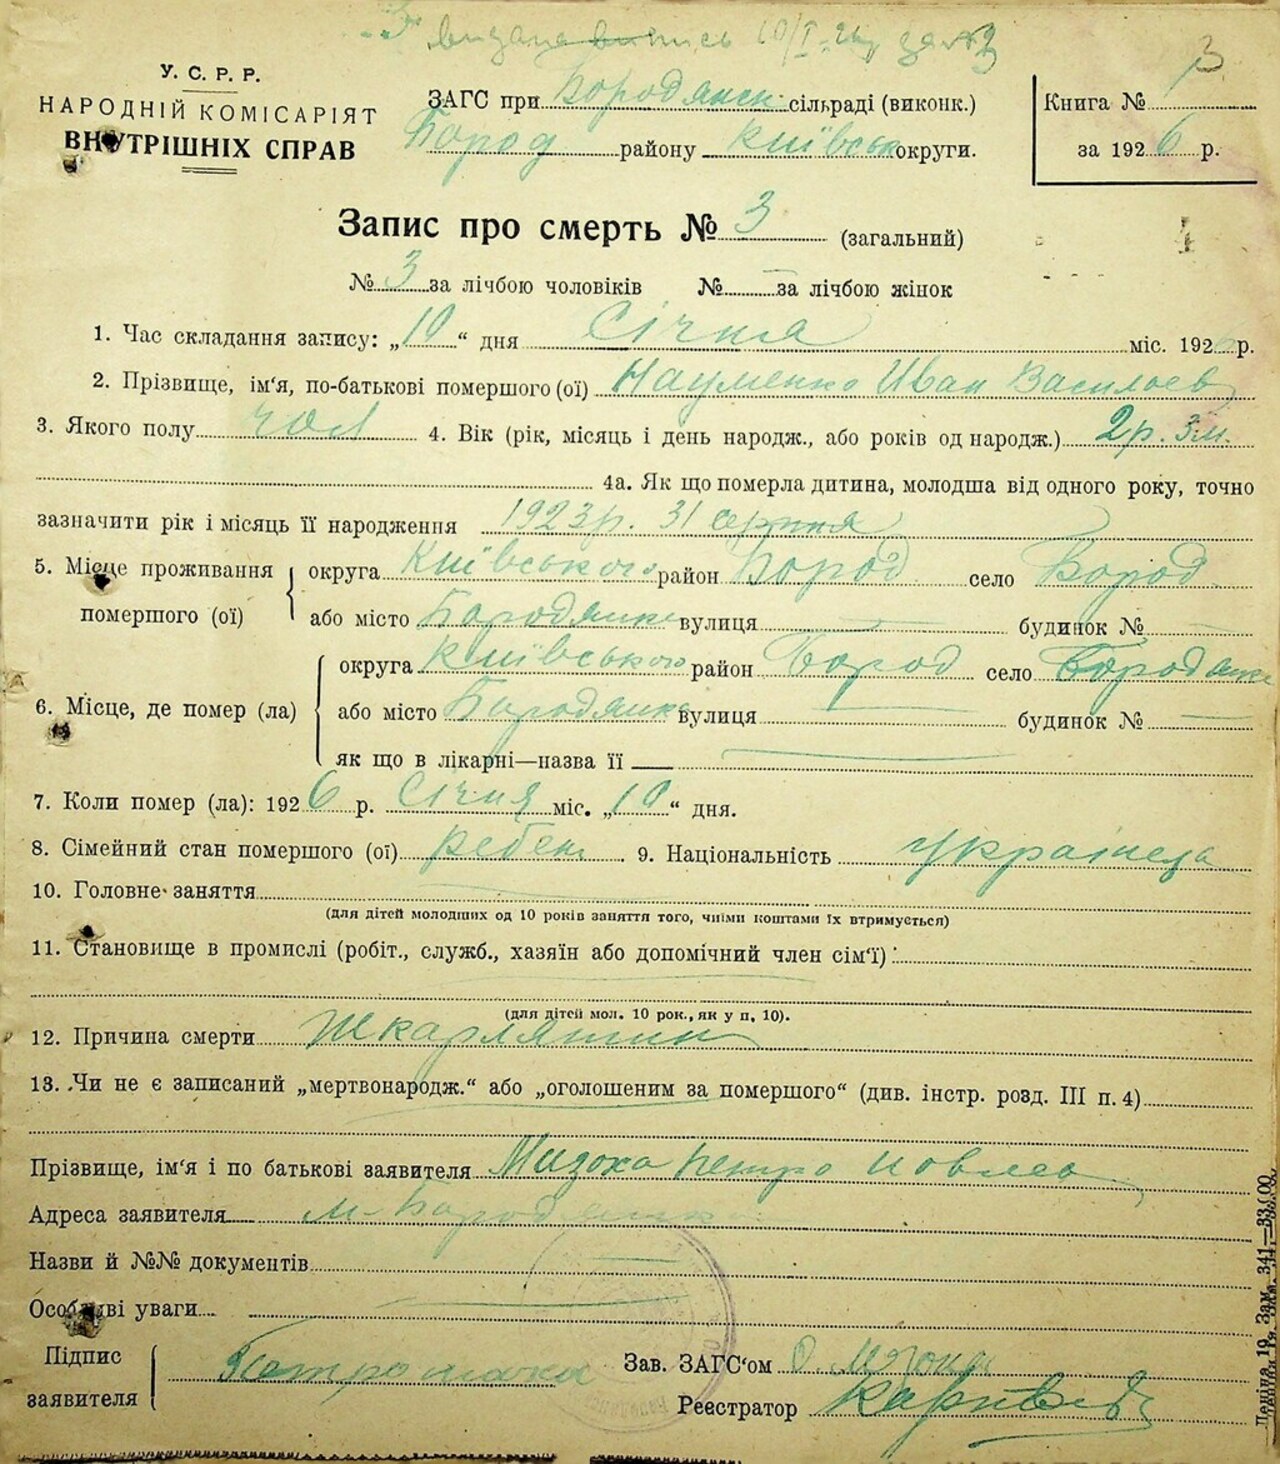 видана випись 10/I-26р за №3
3
У. С. Р. Р.
НАРОДНІЙ КОМІСАРІЯТ
ВНУТРІШНІХ СПРАВ
ЗАГС при Бородянск сільраді (виконк.)
Бород району Київськ округи.
Книга № 1
за 1926 р.
Запис про смерть № 3 (загальний)
№ 3 за лічбою чоловіків № — за лічбою жінок
1. Час складання запису: „10“ дня Січня міс. 1926 р.
2. Прізвище, ім'я, по-батькові помершого (ої) Науменко Иван Васильев
3. Якого полу чол 4. Вік (рік, місяць і день народж., або років од народж.) 2 р. 3 м.
4а. Як що померла дитина, молодша від одного року, точно
зазначити рік і місяць її народження 1923 р. 31 серпня
5. Місце проживання помершого (ої) округа Київського район Бород село Бород
або місто Бородянка вулиця — будинок № —
6. Місце, де помер (ла) округа Київського район Бород село Бородянка
або місто Бородянка вулиця — будинок № —
як що в лікарні—назва її —
7. Коли помер (ла): 1926 р. Січня міс. „10“ дня.
8. Сімейний стан помершого (ої) ребен 9. Національність українець
10. Головне заняття —
(для дітей молодших од 10 років заняття того, чиїми коштами їх втримується)
11. Становище в промислі (робіт., служб., хазяїн або допомічний член сім'ї) —
(для дітей мол. 10 рок., як у п. 10).
12. Причина смерти Шкарлятин
13. Чи не є записаний „мертвонародж.“ або „оголошеним за помершого“ (див. інстр. розд. III п. 4)
Прізвище, ім'я і по батькові заявителя Петро
Адреса заявителя м. Бородянк
Назви й №№ документів —
Особливі уваги —
Підпис заявителя Петро
Зав. ЗАГС'ом
Реєстратор